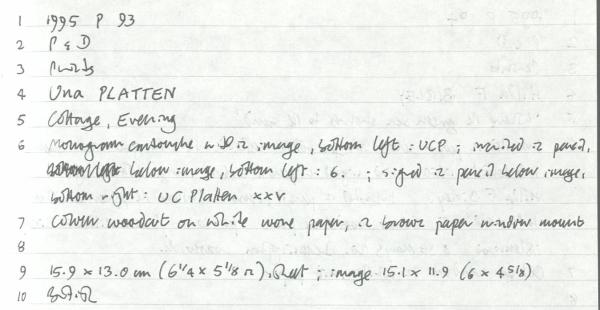 1 1995 P 93
2 P & D
3 Prints
4 Una PLATTEN
5 Cottage, Evening
6 Monogram cartouche within image, bottom left : UCP ; inscribed in pencil,
below image, bottom left : 6. ; signed in pencil below image,
bottom right : UC Platten xxv
7 Colour woodcut on white wove paper, in brown paper window mount
8
9 15.9 x 13.0 cm (6 1/4 x 5 1/8 in), sheet ; image 15.1 x 11.9 (6 x 4 5/8)
10